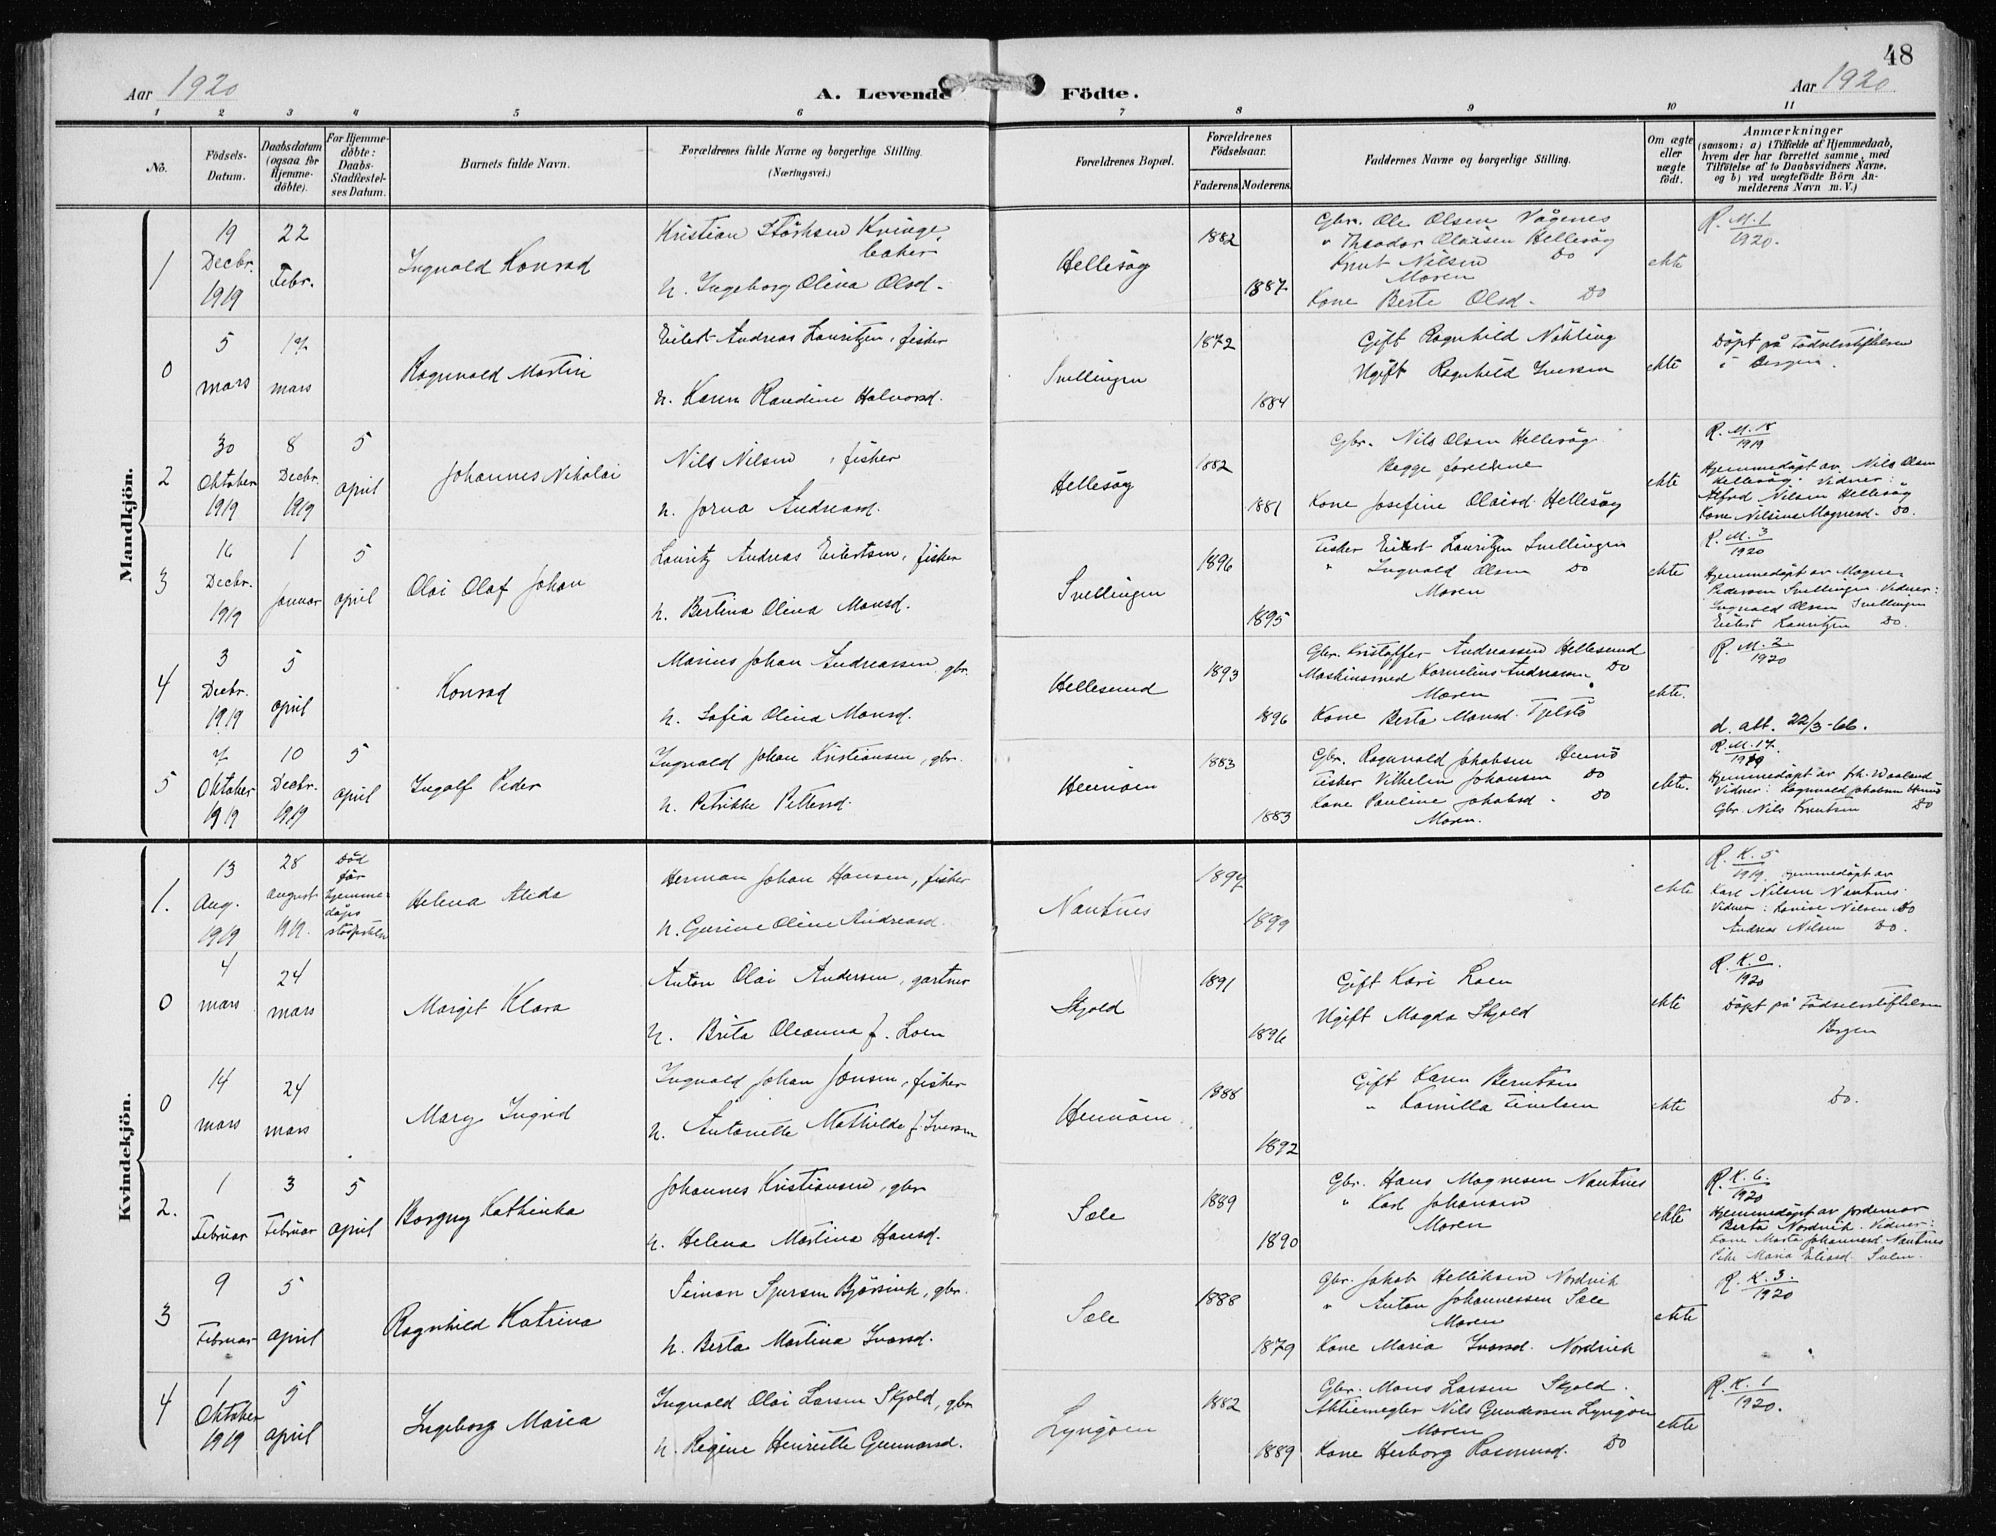 48
Aar 1920
A. Levende Födte.
Aar 1920
1 2 3 4 5 6 7 8 9 10 11
No.
Födsels-Datum.
Daabsdatum (ogsaa for Hjemmedöbte).
For Hjemmedöbte: Daabs-Stadfæstelses Datum.
Barnets fulde Navn.
Forældrenes fulde Navne og borgerlige Stilling. (Næringsvei.)
Forældrenes Bopæl.
Forældrenes Födselsaar.
Faderens. Moderens.
Faddernes Navne og borgerlige Stilling.
Om ægte eller uægte födt.
Anmærkninger
(saasom: a) i Tilfælde af Hjemmedaab, hvem der har forrettet samme, med Tilföielse af to Daabsvidners Navne, og b) ved uægtefödte Börn Anmelderens Navn m. V.)
Mandkjön.
1
19 Decbr. 1919
22 Febr.
Ingvald Konrad
Kristian Störksen Kvinge, baker
h. Ingeborg Olina Olsd.
Hellesöy
1882
1887
Gbr. Ole Olsen Vågenes
" Theodor Olaisen Hellesöy
Knut Nilsen Do
Moren
Kone Berte Olsd. Do
ekte
R. M. 1
1920.
0
5 mars
17 mars
Ragnvald Martin
Eilert Andreas Lauritzen, fisker
h. Karen Randine Halvorsd.
Svellingen
1872
1884
Gift Ragnhild Nökling
Ugift Ragnhild Iversen
ekte
Döpt på Födselsstiftelsen
i Bergen.
2
30 Oktober 1919
8 Decbr. 1919
5 april
Johannes Nikolai
Nils Nilsen, fisker
h. Jorna Andreasd.
Hellesöy
1882
1881
Gbr. Nils Olsen Hellesöy
Begge foreldrene
Kone Josefine Olaisd. Hellesöy
ekte
R. M. 18
1919
Hjemmedöpt av Nils Olsen
Hellesöy. Vidner:
Alfred Nilsen Hellesöy
Kone Nilsine Magnesd. Do.
3
16 Decbr. 1919
1 januar
5 april
Olai Olaf Johan
Lauritz Andreas Eilertsen, fisker
h. Bertina Olina Monsd.
Svellingen
1896
1895
Fisker Eilert Lauritzen Svellingen
" Ingvald Olsen Do
Moren
ekte
R. M. 3
1920
Hjemmedöpt av Magne
Pedersen Svellingen. Vidner:
Ingvald Olsen Svellingen
Eilert Lauritzen Do.
4
3 Decbr. 1919
5 april
Konrad
Marius Johan Andreassen, gbr.
h. Sofia Olina Monsd.
Hellesund
1893
1896
Gbr. Kristoffer Andreassen Hellesund
Maskinsmed Kornelius Andreassen Do
Moren
Kone Berta Monsd. Tjelstö
ekte.
R. M. 2
1920
d. att. 22/3-66.
5
7 Oktober 1919
10 Decbr. 1919
5 april
Ingolf Peder
Ingvald Johan Kristiansen, gbr.
h. Petrikke Pettersd.
Hennöen
1883
1883
Gbr. Ragnvald Jakobsen Hennö
Fisker Vilhelm Johansen Do
Kone Pauline Jakobsd. Do
Moren.
ekte.
R. M. 17
1919
Hjemmedöpt av frk. Waaland
Vidner: Ragnvald Jakobsen Hennö
Gbr. Nils Knutsen Do
Kvindekjön.
1.
13 Aug. 1919
28 august 1919.
Död för hjemmedåps
Helena Alida
Herman Johan Hansen, fisker
h. Gurine Oline Andreasd.
Nautnes
1897
1899
ekte
R. K. 5
1919. Hjemmedöpt av
Karl Nilsen Nautnes.
Vidner: Lovise Nilsen Do
Andreas Nilsen Do.
0
4 mars
24 mars
Margit Klara
Anton Olai Andersen, gartner
h. Brita Oleanna f. Loen
Skjold
1891
1896
Gift Kari Loen
Ugift Magda Skjold
ekte
R. K. 0
1920
Döpt på Födselsstiftelsen
Bergen
0
14 mars
24 mars
Mary Ingrid
Ingvald Johan Jensen, fisker
h. Antonette Mathilde f. Iversen
Hennöen
1888
1892
Gift Karen Berntsen
" Kamilla Tivelsen
ekte
Do.
2.
1 Februar
3 Februar
5 april
Borgny Kathinka
Johannes Kristiansen, gbr
h. Helena Martina Hansd.
Sæle
1889
1890
Gbr. Hans Magnesen Nautnes
" Karl Johansen
Moren
ekte
R. K. 6.
1920
Hjemmedöpt av jordemor
Berta Nordvik. Vidner:
Kone Marta Johannesd. Nautnes
Pike Maria Eliasd. Sulen.
3
9 Februar
5 april
Ragnhild Katrina
Seimon Sjursen Björsvik, gbr.
h. Berta Martina Ivarsd.
Sæle
1888
1879
Gbr. Jakob Helliksen Nordvik
" Anton Johannessen Sæle
Moren
Kone Maria Ivarsd. Nordvik
ekte
R. K. 3.
1920
4
1 Oktober 1919
5 april
Ingeborg Maria
Ingvald Olai Larsen Skjold, gbr
h. Regine Henriette Gunnarsd.
Lyngöen
1882
1889
Gbr. Mons Larsen Skjold.
Aktiemegler Nils Gundersen Lyngöen
Moren
Kone Herborg Rasmusd. Do
ekte
R. K. 1
1920.